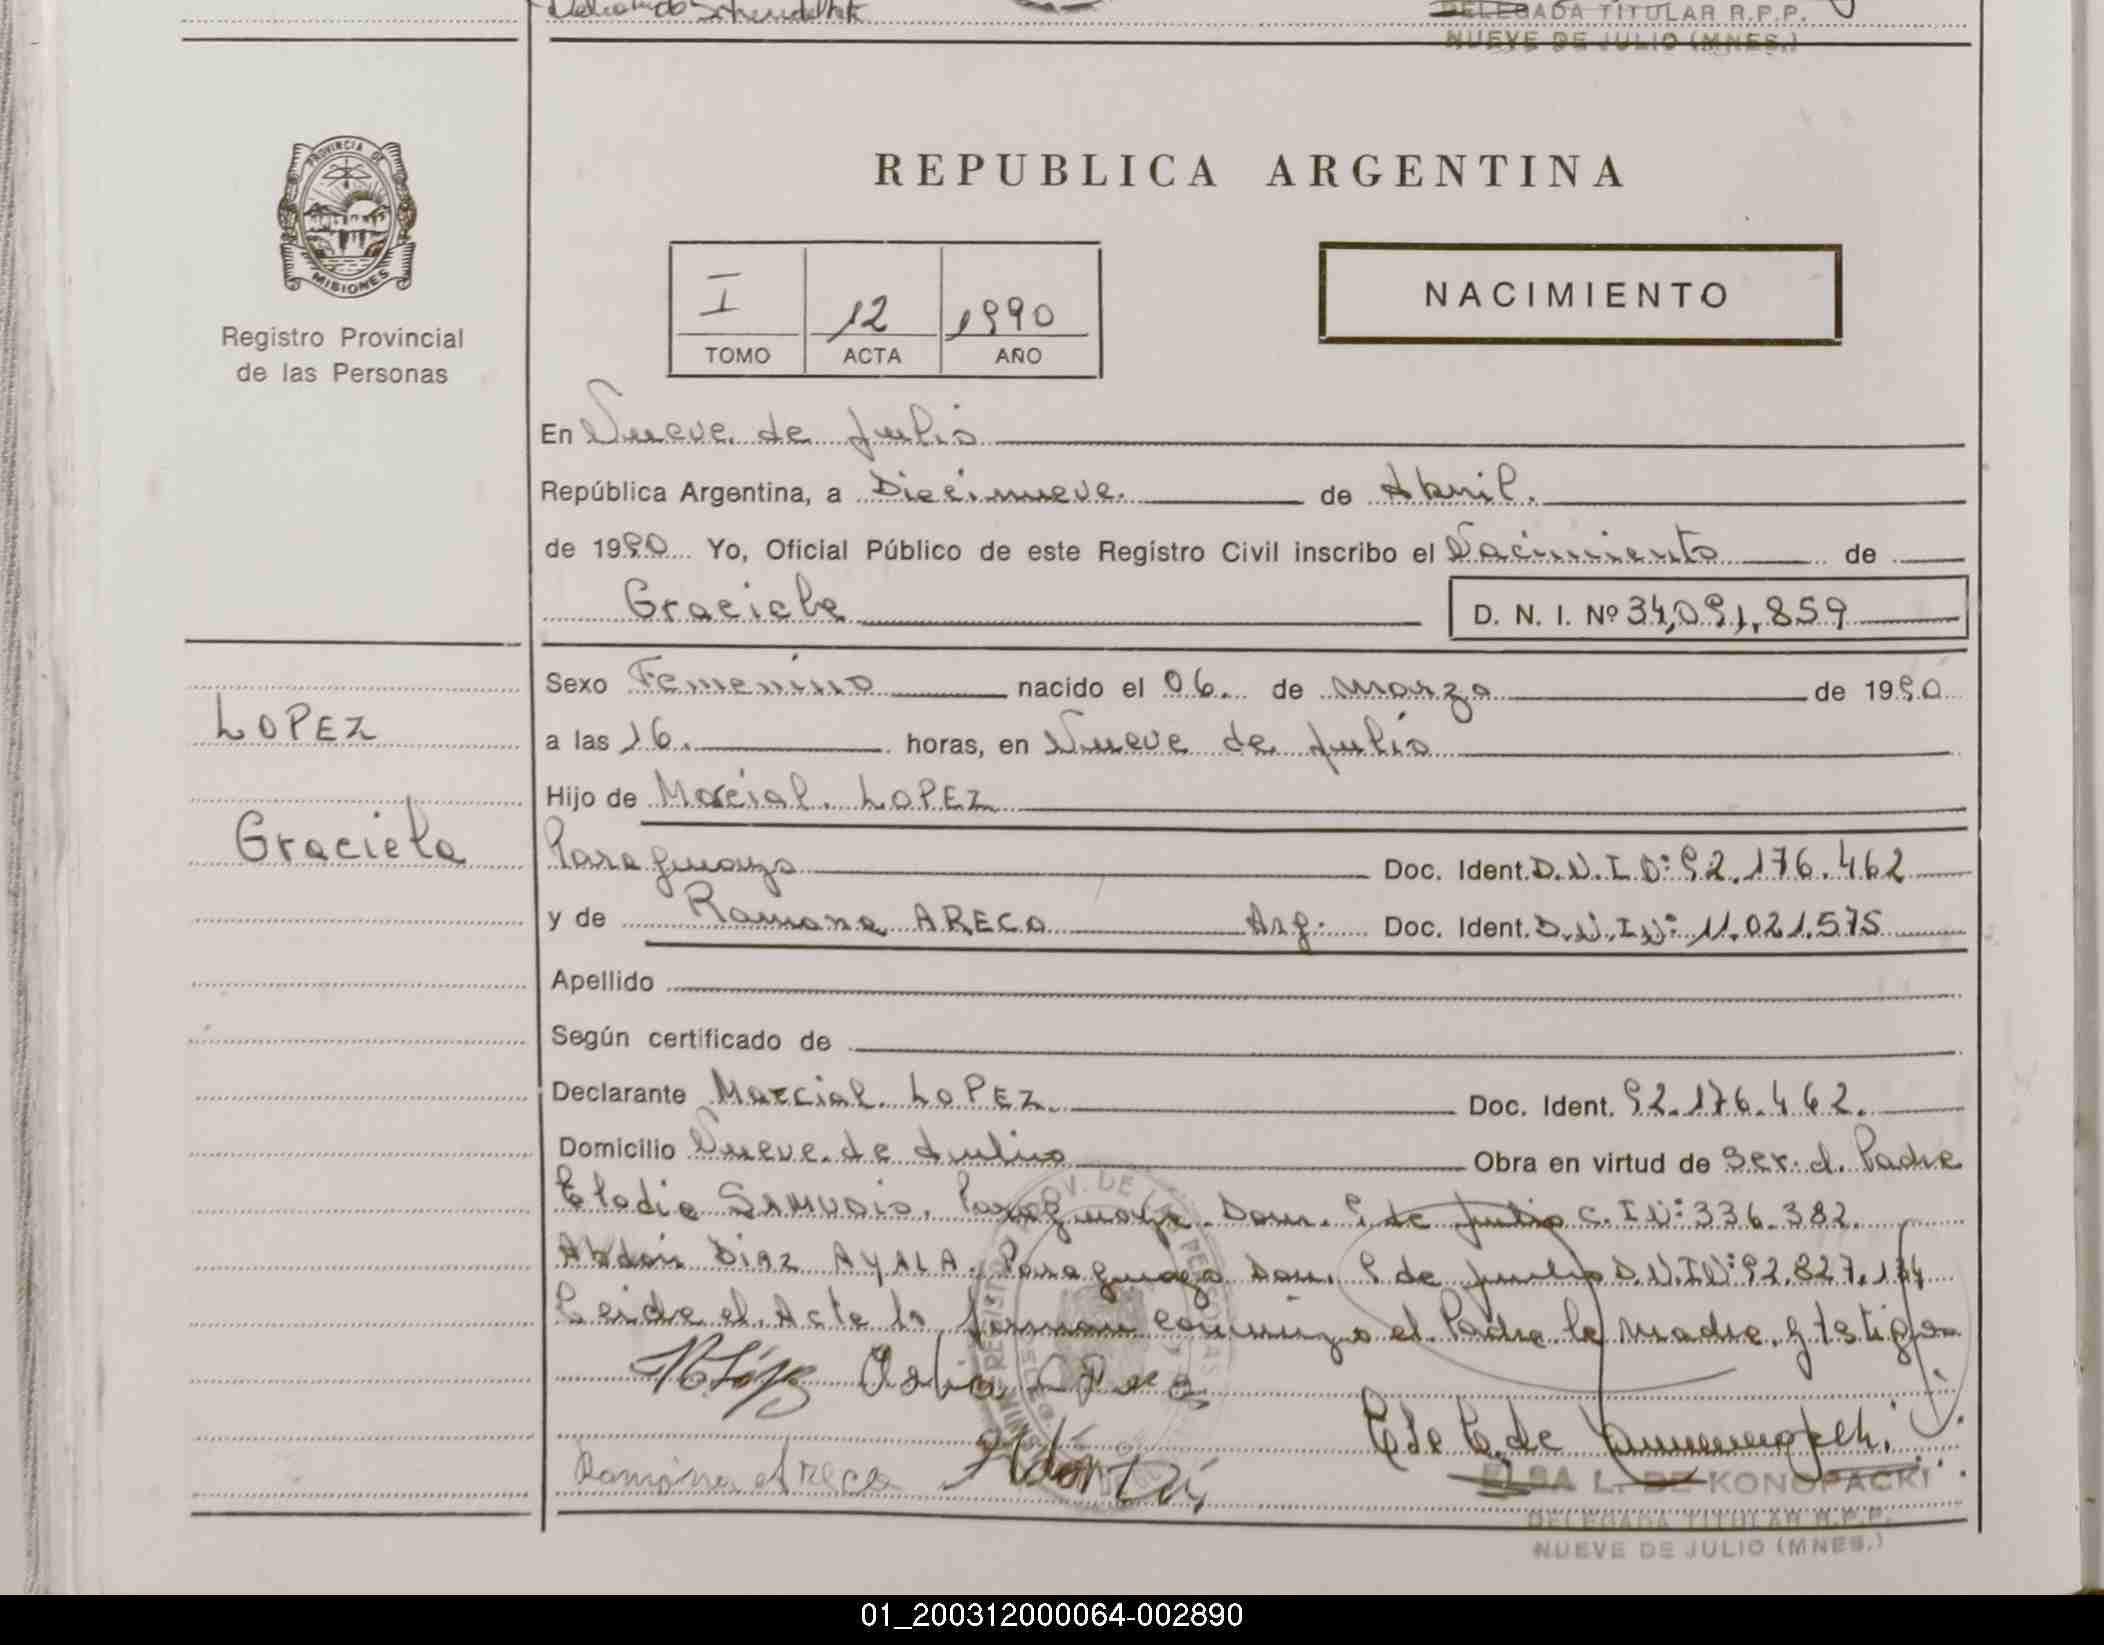 DELEGADA TITULAR R.P.P.
NUEVE DE JULIO (MNES.)
PROVINCIA DE
MISIONES
Registro Provincial
de las Personas
REPUBLICA ARGENTINA
I 12 1990
TOMO ACTA AÑO
NACIMIENTO
En Nueve de Julio
República Argentina, a Diecinueve. de Abril.
de 1990 Yo, Oficial Público de este Registro Civil inscribo el Nacimiento de
Graciela D. N. I. Nº 34,091,859
Sexo Femenino nacido el 06. de marzo de 1990
LOPEZ
a las 16. horas, en Nueve de Julio
Hijo de Marcial LOPEZ
Graciela
Paraguayo Doc. Ident. D.N.I.Nº: 92.176.462
y de Ramona ARECO Arg. Doc. Ident. D.N.I.Nº: 11.021.575
Apellido
Según certificado de
Declarante Marcial LOPEZ. Doc. Ident. 92.176.462.
Domicilio Nueve de Julio Obra en virtud de Ser el Padre
Elodia SAMUDIO. Paraguaya. Dom. 9 de Julio C.I.Nº: 336.382.
Abdón DIAZ AYALA. Paraguayo Dom. 9 de Julio D.N.I.Nº: 92.827.
Leida el Acta la firman conmigo el Padre la madre y testigos
Ramona Areco
ELSA L. DE KONOPACKI
DELEGADA TITULAR R.P.P.
NUEVE DE JULIO (MNES.)
01_200312000064-002890